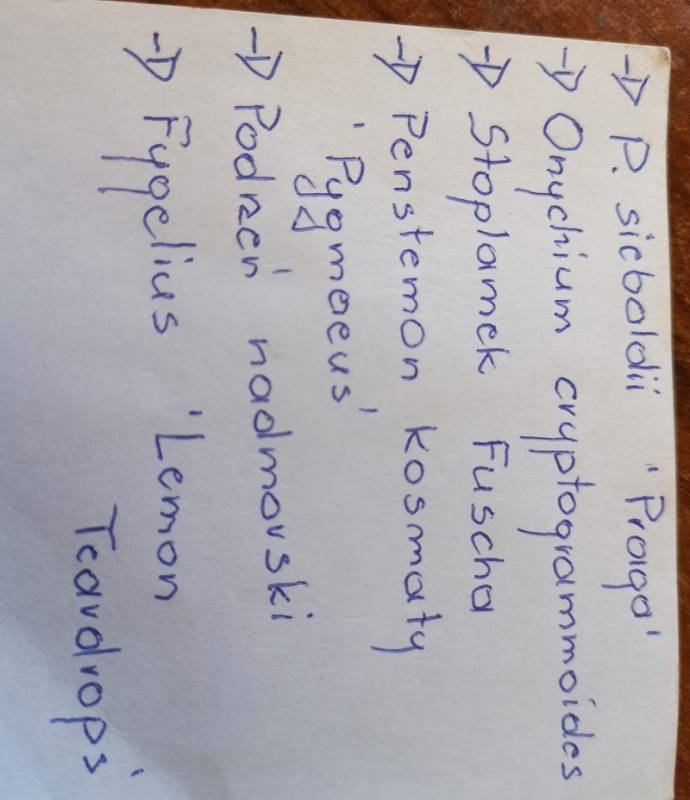 → P. sieboldii 'Praga'
→ Onychium cryptogrammoides
→ Stoplamek Fuscha
→ Penstemon kosmaty
'Pygmaeus'
→ Podrzeń nadmorski
→ Fygelius 'Lemon
Teardrops'